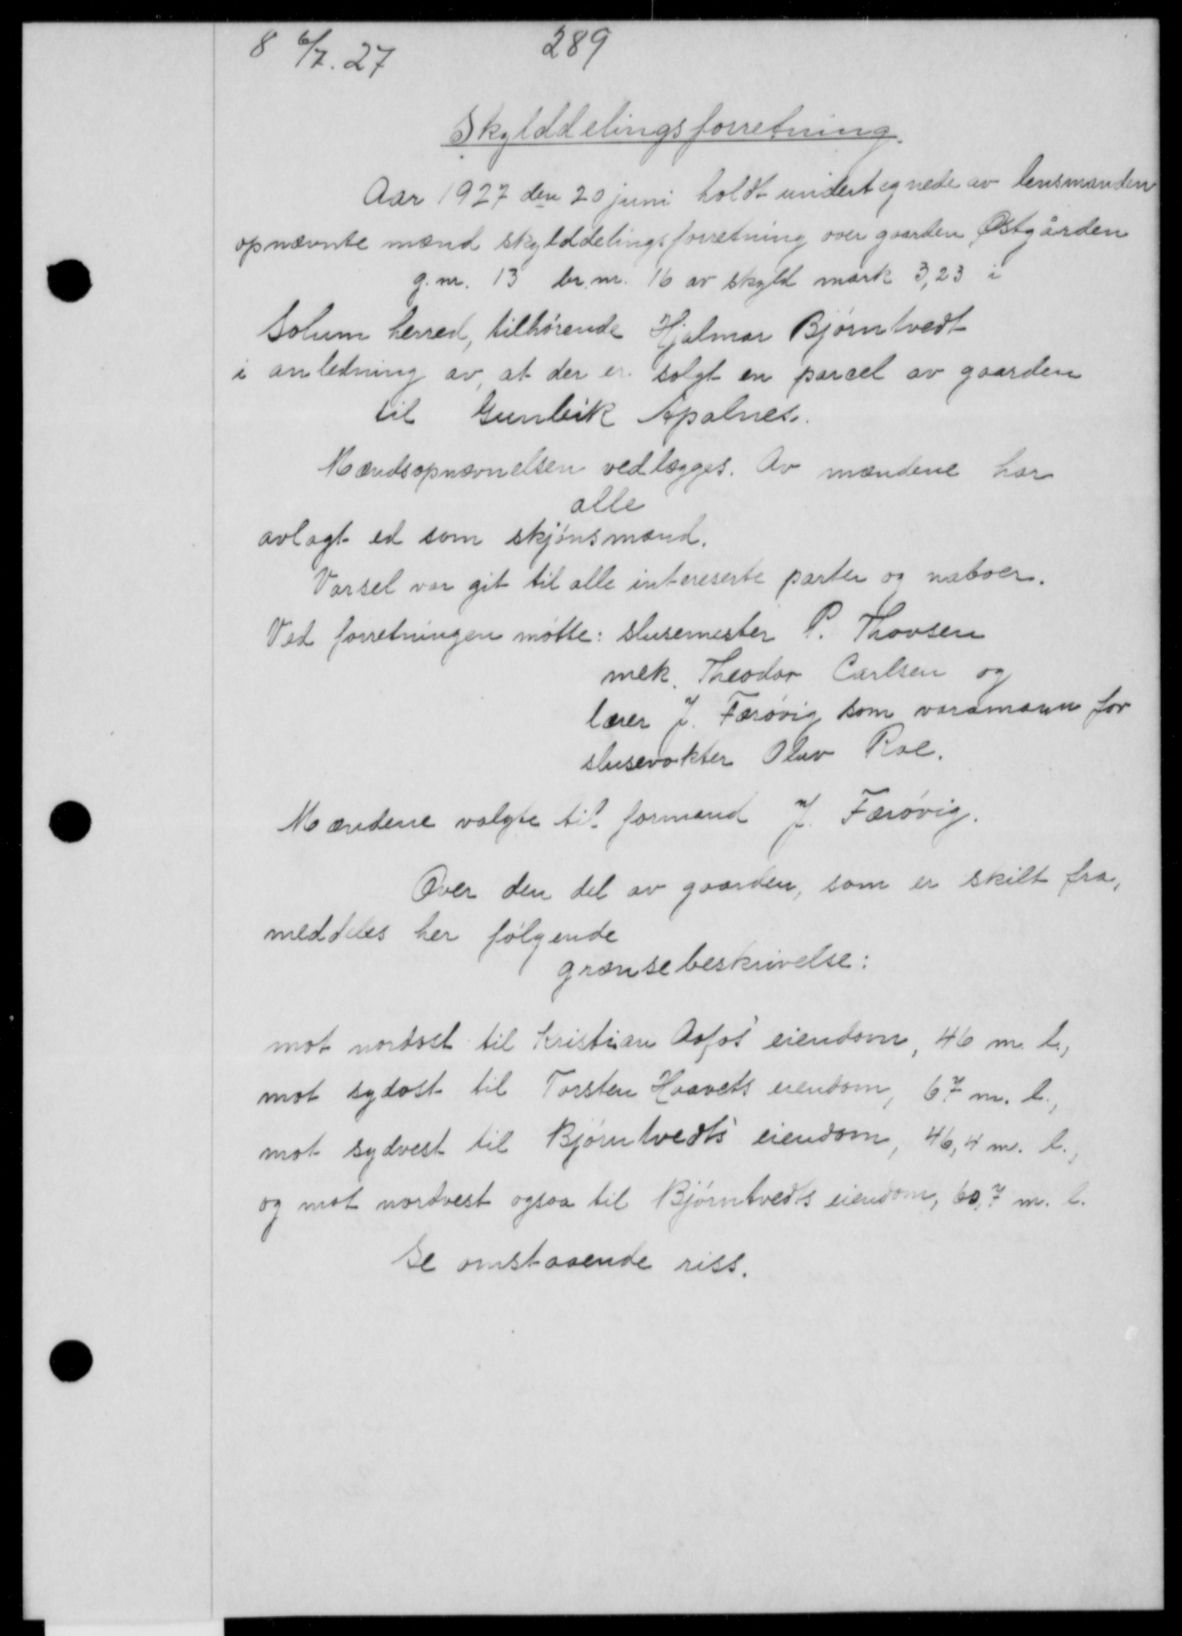 8 6/7. 27 289
Skylddelingsforretning.
Aar 1927 den 20 juni holdt undertegnede av lensmanden
opnævnte mænd skylddelingsforretning over gaarden Østgården
g.nr. 13 br.nr. 16 av skyld mark 3,23 i
Solum herred, tilhørende Hjalmar Bjørntvedt
i anledning av, at der er solgt en parcel av gaarden
til Gunleik Apalnes.
Mændsopnævnelsen vedlægges. Av mændene har
alle
avlagt ed som skjønsmænd.
Varsel var git til alle intereserte parter og naboer.
Ved forretningen møtte: slusemester P. Thovsen
mek. Theodor Carlsen og
lærer J. Færøvig som varamann for
slusevokter Olav Roe.
Mændene valgte til formand J. Færøvig.
Over den del av gaarden, som er skilt fra,
meddeles her følgende
grænsebeskrivelse:
mot nordost til Kristian Aafos' eiendom, 46 m. l.,
mot sydost til Torsten Haavets eiendom, 67 m. l.,
mot sydvest til Bjørntvedts' eiendom, 46,4 m. l.,
og mot nordvest ogsaa til Bjørntvedts eiendom, 60,7 m. l.
Se omstaaende riss.